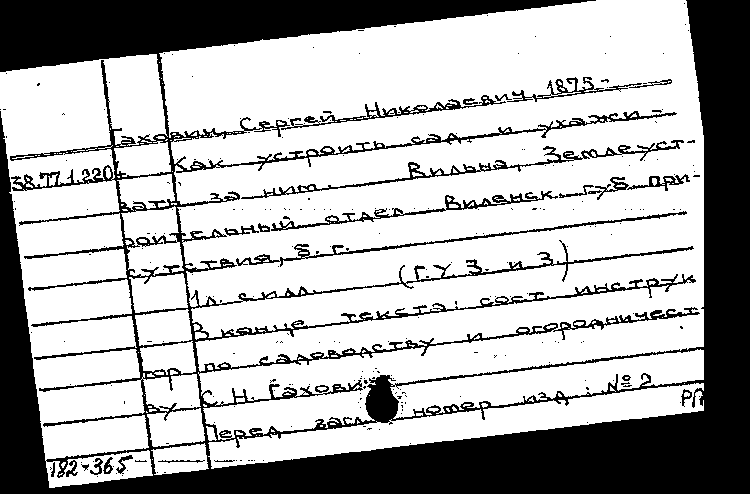 Гахович, Сергей Николаевич, 1875-
38.77.1.220. Как устроить сад и ухажи-
вать за ним. Вильна, Землеуст-
роительный отдел Виленск. губ. при-
сутствия, б. г.
1л. с илл. (Г.У З. и З.)
В конце текста: сост. инструк
тор по садоводству и огородничест-
ву С. Н. Гахович
Перед загл. номер изд.: № 2
182-365